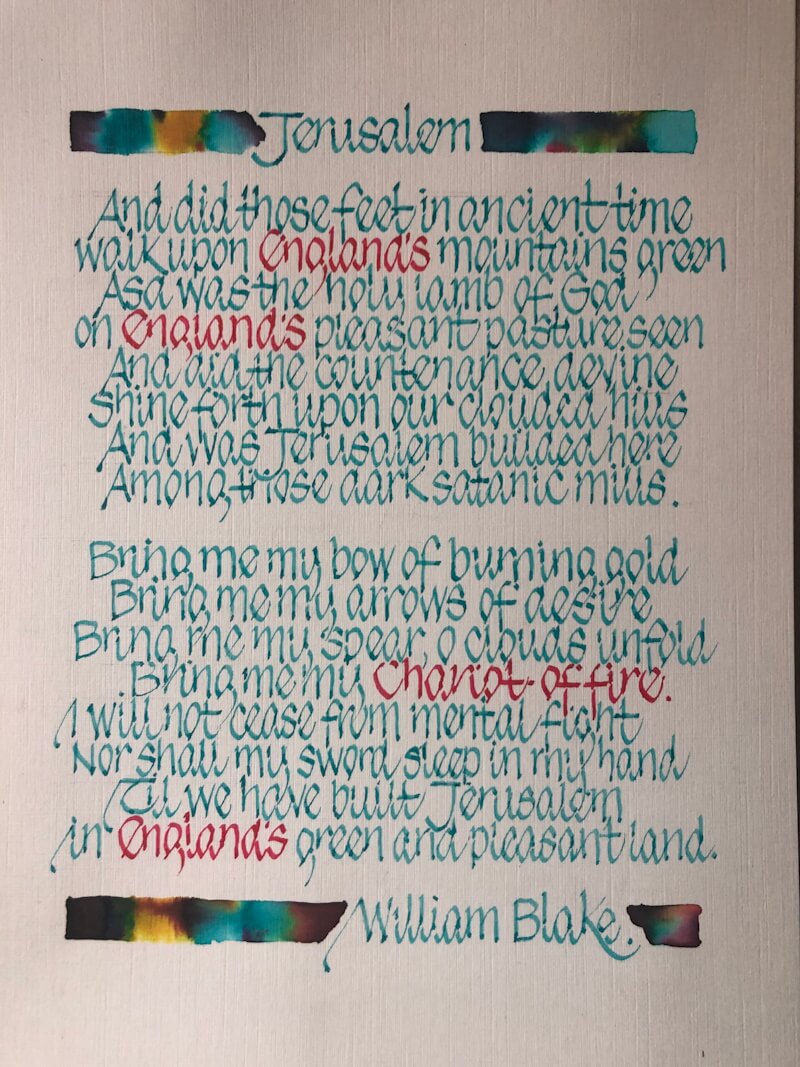 Jerusalem
And did those feet in ancient time
walk upon England's mountains green
Asd was the holy lamb of God
on England's pleasant pasture seen
And did the countenance devine
Shine forth upon our clouded hills
And was Jerusalem builded here
Among those dark satanic mills.
Bring me my bow of burning gold
Bring me my arrows of desire
Bring me my spear, o clouds unfold
Bring me my Chariot of fire.
I will not cease from mental fight
Nor shall my sword sleep in my hand
'Til we have built Jerusalem
in England's green and pleasant land.
William Blake.